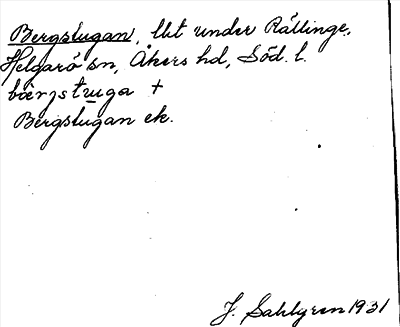 Bergstugan, lht under Rällinge,
Helgarö sn, Åkers hd, Söd. l.
bærjstuga +
Bergstugan ek.
J. Sahlgren 1931